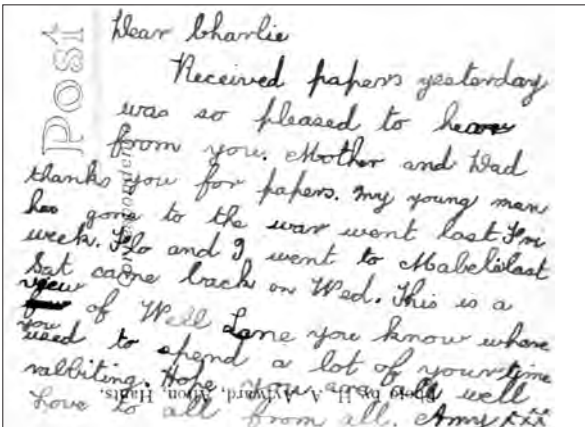 Post
Dear Charlie
Received papers yesterday
was so pleased to hear
from you. Mother and Dad
thanks you for papers. my young man
has gone to the war went last Fri
week. Flo and I went to Mabels last
Sat came back on Wed. This is a
view
of Well Lane you know where
you
used to spend a lot of your time
rabbiting. Hope you are all well
Photo by H. A. Aylward, Alton, Hants.
Love to all from all. Amy xxx